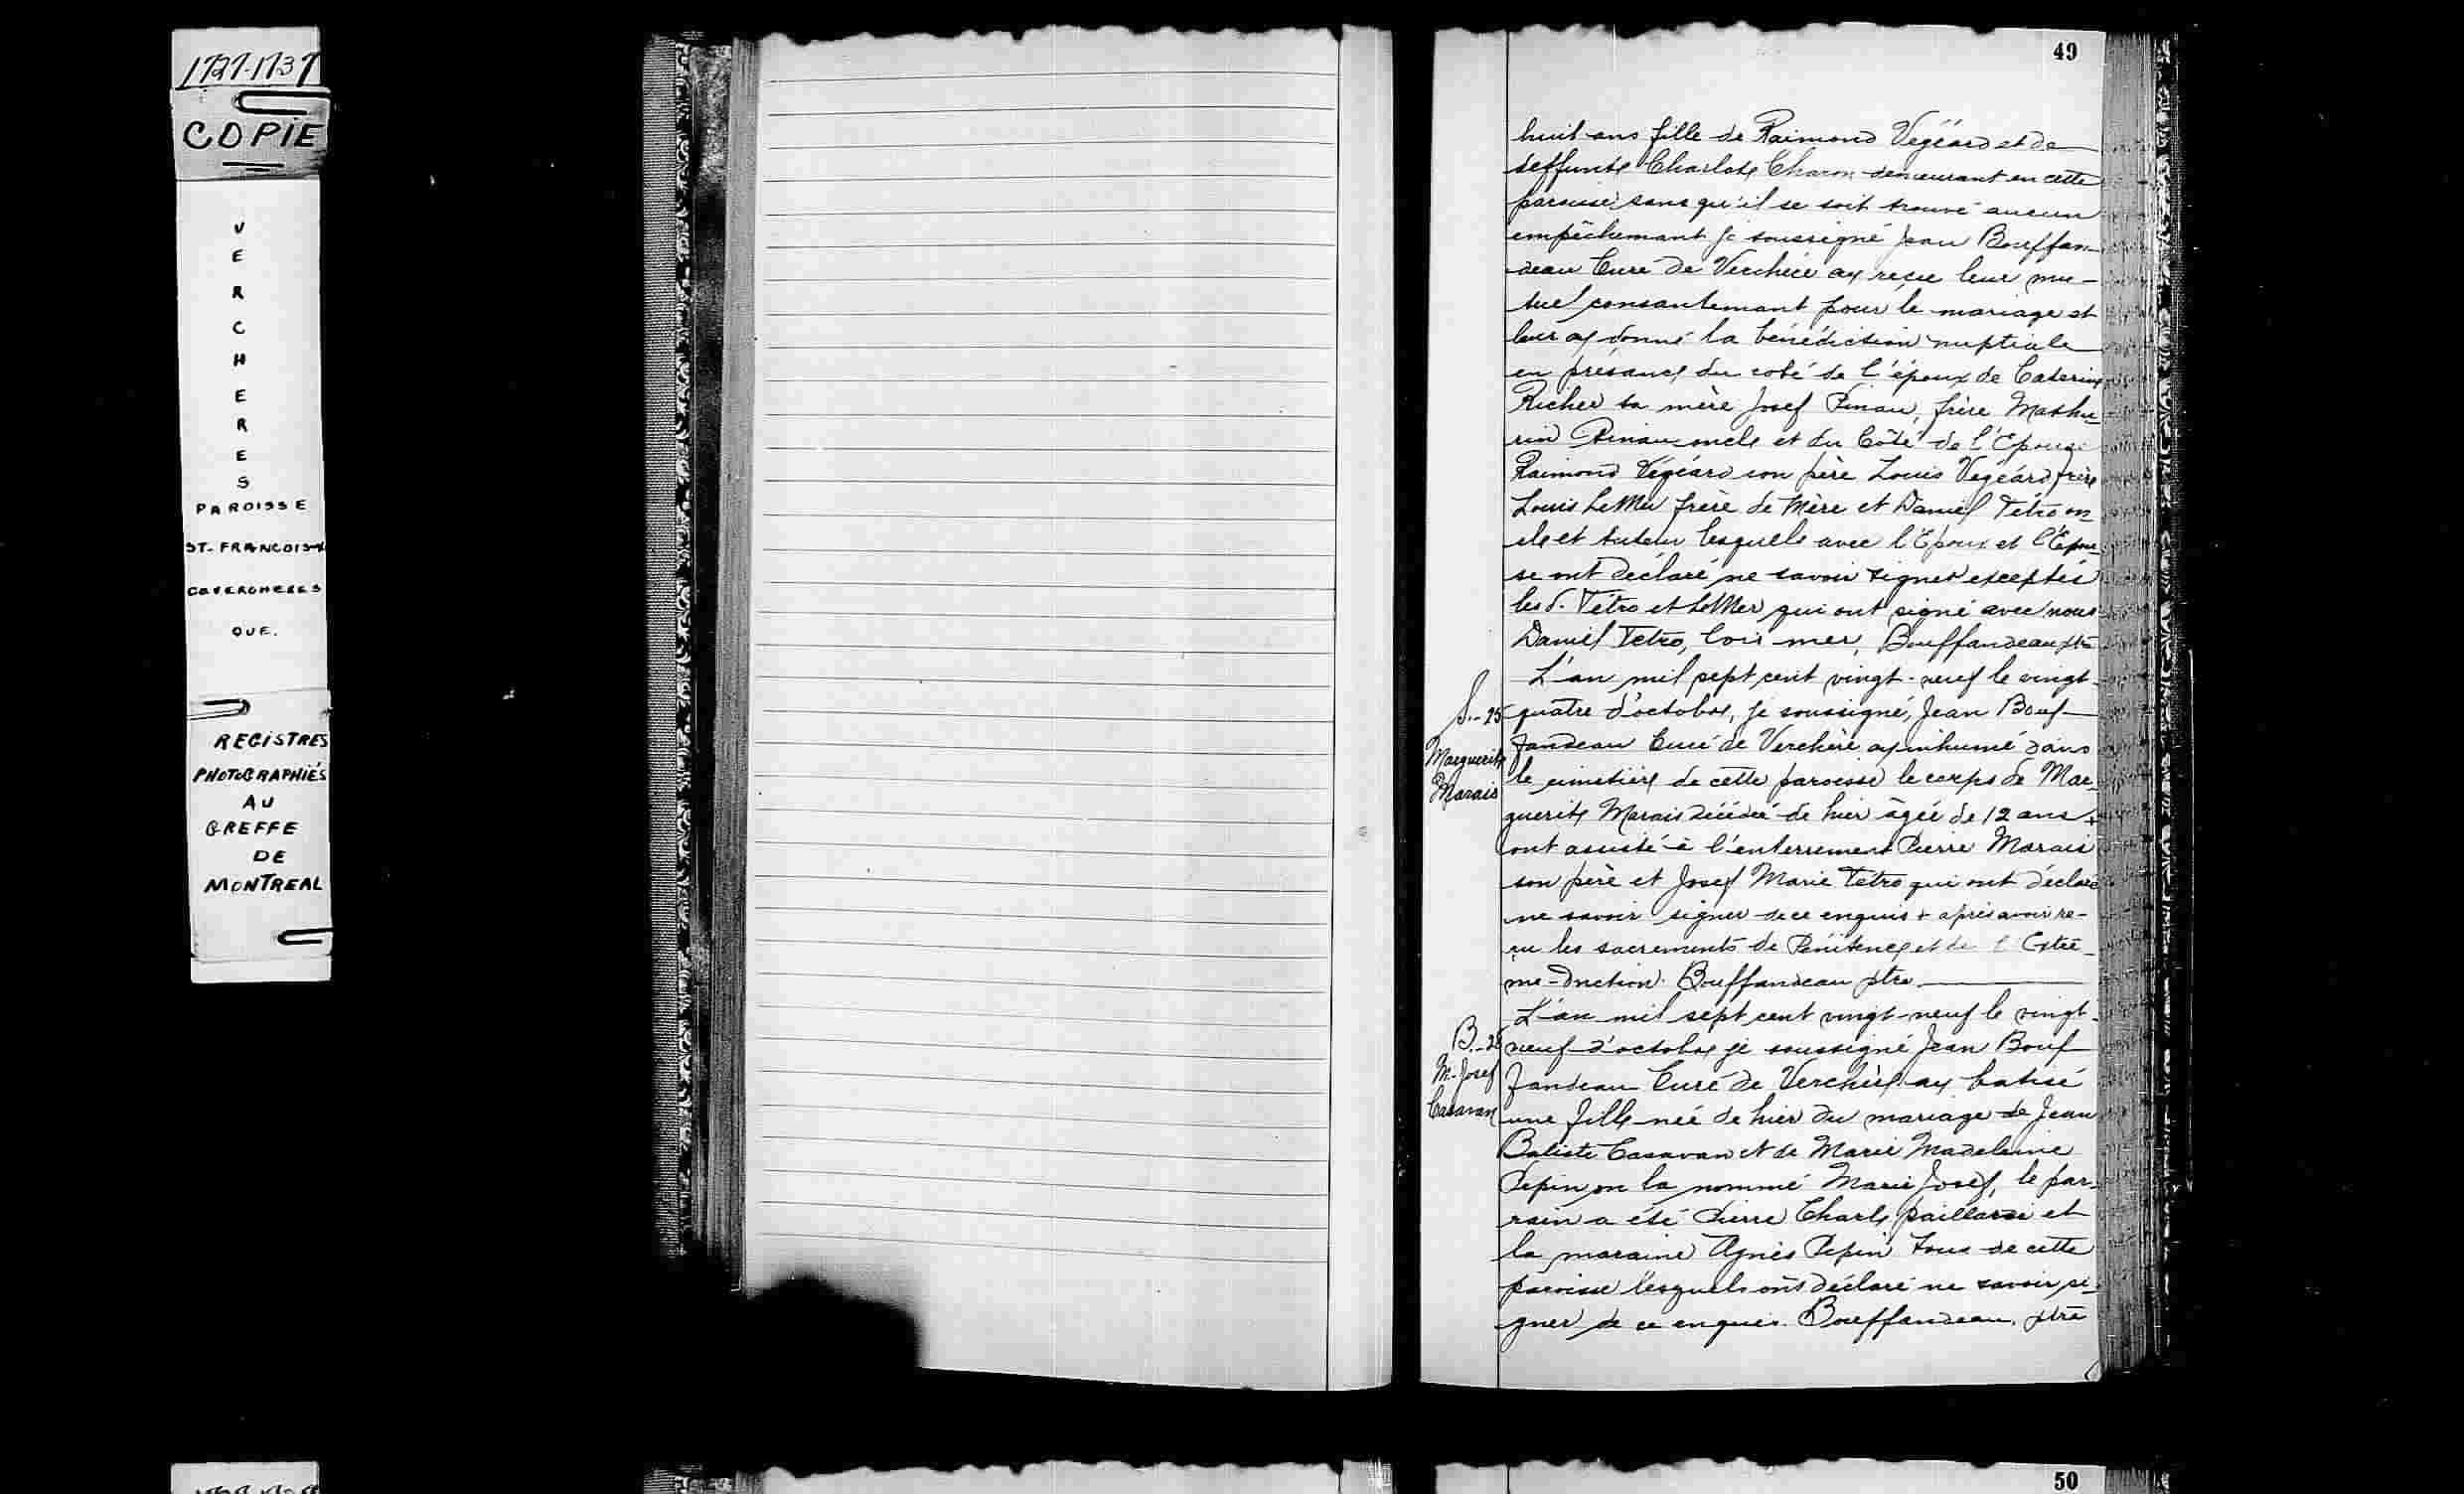 1727-1737
COPIE
V
E
R
C
H
E
R
E
S
PAROISSE
ST. FRANCOIS-X
QUE.
REGISTRES
PHOTOGRAPHIÉS
AU
GREFFE
DE
MONTREAL
49
huit ans fille de Raimond Végéard et de
deffunte Charlote Charon demeurant en cette
paroisse, sans qu'il se soit trouvé aucun
empêchemant je soussigné Jean Bouffan-
deau Curé de Verchère ay reçue leur mu-
tuel consantemant pour le mariage et
leur ay donné la bénédiction nuptiale
en présance du coté de l'époux de Caterine
Richer sa mère Josef Pinau, frère Mathu-
rin Pinau oncle et du Côté de l'Epouse
Raimond Végéard son père Louis Vegéard frère
Louis LeMer frère de Mère et Daniel Tétro on
cle et tuteur lesquels avec l'Epoux et l'Epou-
se ont déclaré ne savoir signer exceptés
les d. Tétro et LeMer qui ont signé avec nous
Daniel Tetro, lois mer, Bouffandeau ptre
L'an mil sept cent vingt-neuf le vingt-
S.-25
quatre d'octobre, je soussigné, Jean Bouf
Marguerite
Marais
fandeau Curé de Verchère ay inhumé dans
le cimetière de cette paroisse le corps de Mar-
guerite Marais décédée de hier âgée de 12 ans +
ont assisté à l'enterrement Pierre Marais
son père et Josef Marie Tetro qui ont déclaré
ne savoir signer de ce enquis + après avoir re-
çu les sacrements de Pénitence et de l'Extrê-
me-Onction. Bouffandeau ptre
L'an mil sept cent vingt-neuf le vingt-
B.-28
neuf d'octobre je soussigné Jean Bouf
M.-Josef
Casavan
fandeau Curé de Verchère ay batisé
une fille née de hier du mariage de Jean
Batiste Casavan et de Marie Madeleine
Pepin on la nommé Marie Josef, le par-
rain a été Pierre Charle paillarde et
la maraine Agnès Pepin tous de cette
paroisse lesquels ont déclaré ne savoir si-
gner de ce enquis. Bouffandeau, ptre
50